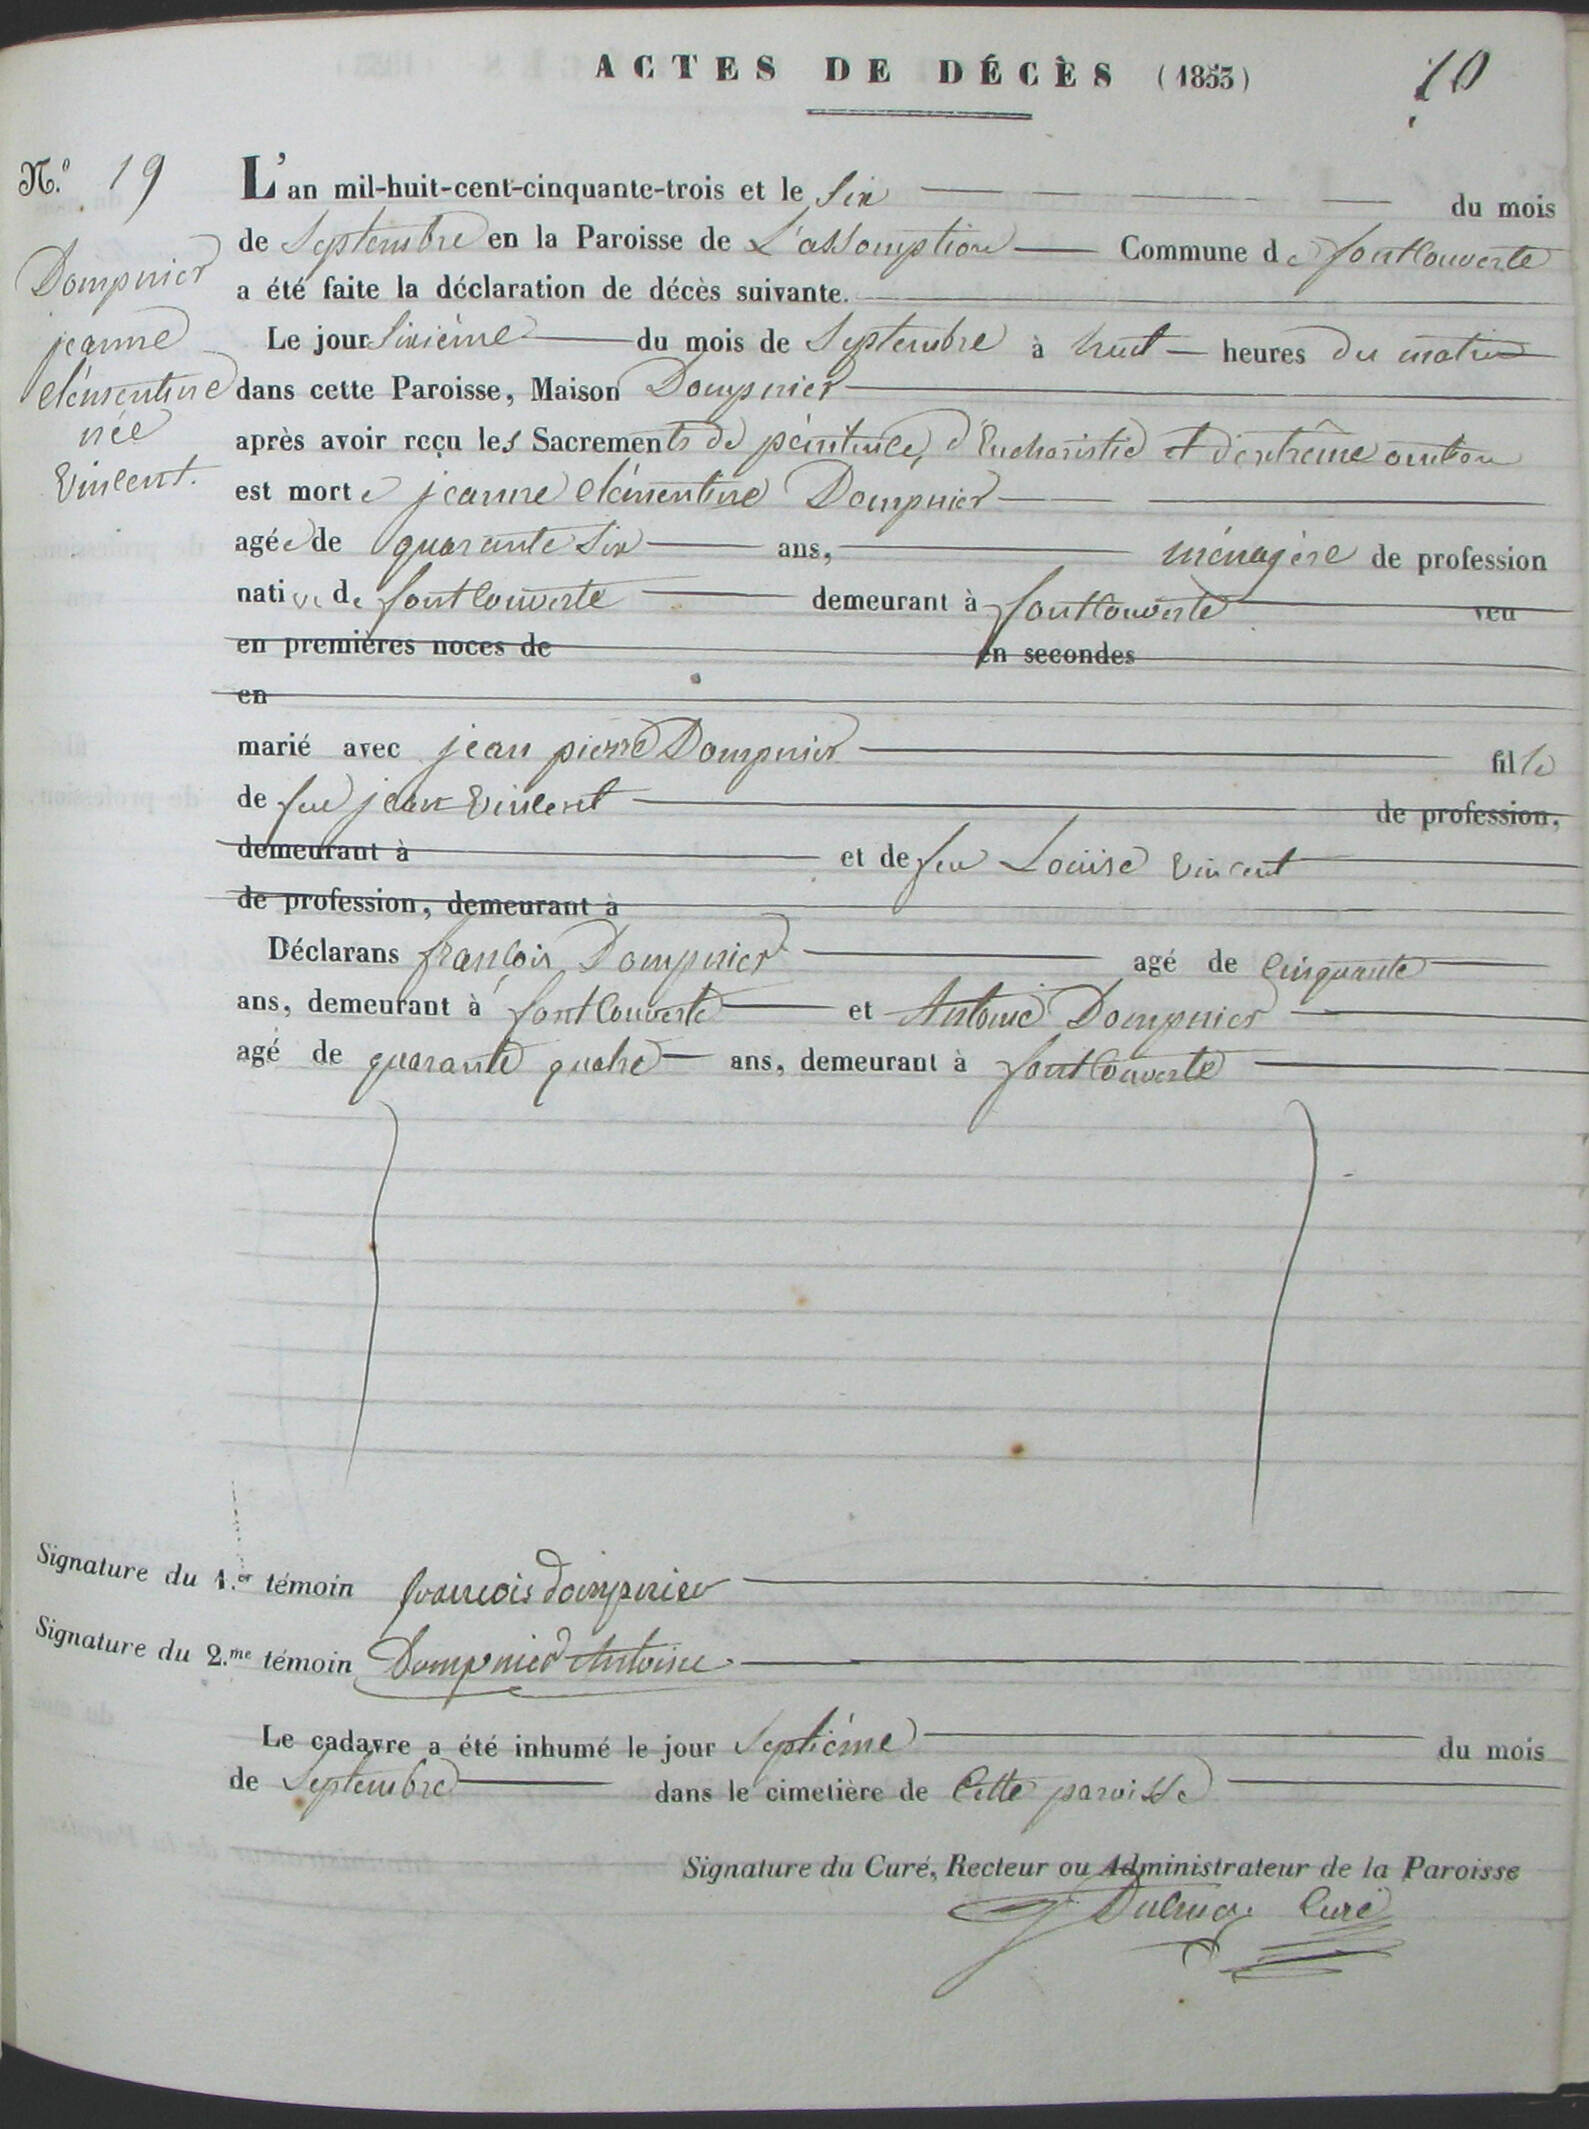 ACTES DE DÉCÈS (1853)
10
N.º 19
Dompnier
jeanne
clémentine
née
Vincent.
L'an mil-huit-cent-cinquante-trois et le six du mois
de Septembre en la Paroisse de L'assomption Commune de fontcouverte
a été faite la déclaration de décès suivante.
Le jour sixième du mois de Septembre à huit heures du matin
dans cette Paroisse, Maison Dompnier
après avoir reçu les Sacrements de pénitence, d'Eucharistie et d'extrême onction
est morte jeanne clémentine Dompnier
agée de quarante six ans, ménagère de profession
native de fontcouverte demeurant à fontcouverte veu
en premières noces de en secondes
en
marié avec jean pierre Dompnier fille
de feu jean Vincent de profession,
demeurant à et de feu Louise Vincent
de profession, demeurant à
Déclarans françois Dompnier agé de cinquante
ans, demeurant à fontcouverte et Antoine Dompnier
agé de quarante quatre ans, demeurant à fontcouverte
Signature du 1.er témoin francois dompnier
Signature du 2.me témoin Dompnier Antoine
Le cadavre a été inhumé le jour Septième du mois
de Septembre dans le cimetière de cette paroisse
Signature du Curé, Recteur ou Administrateur de la Paroisse
Curé